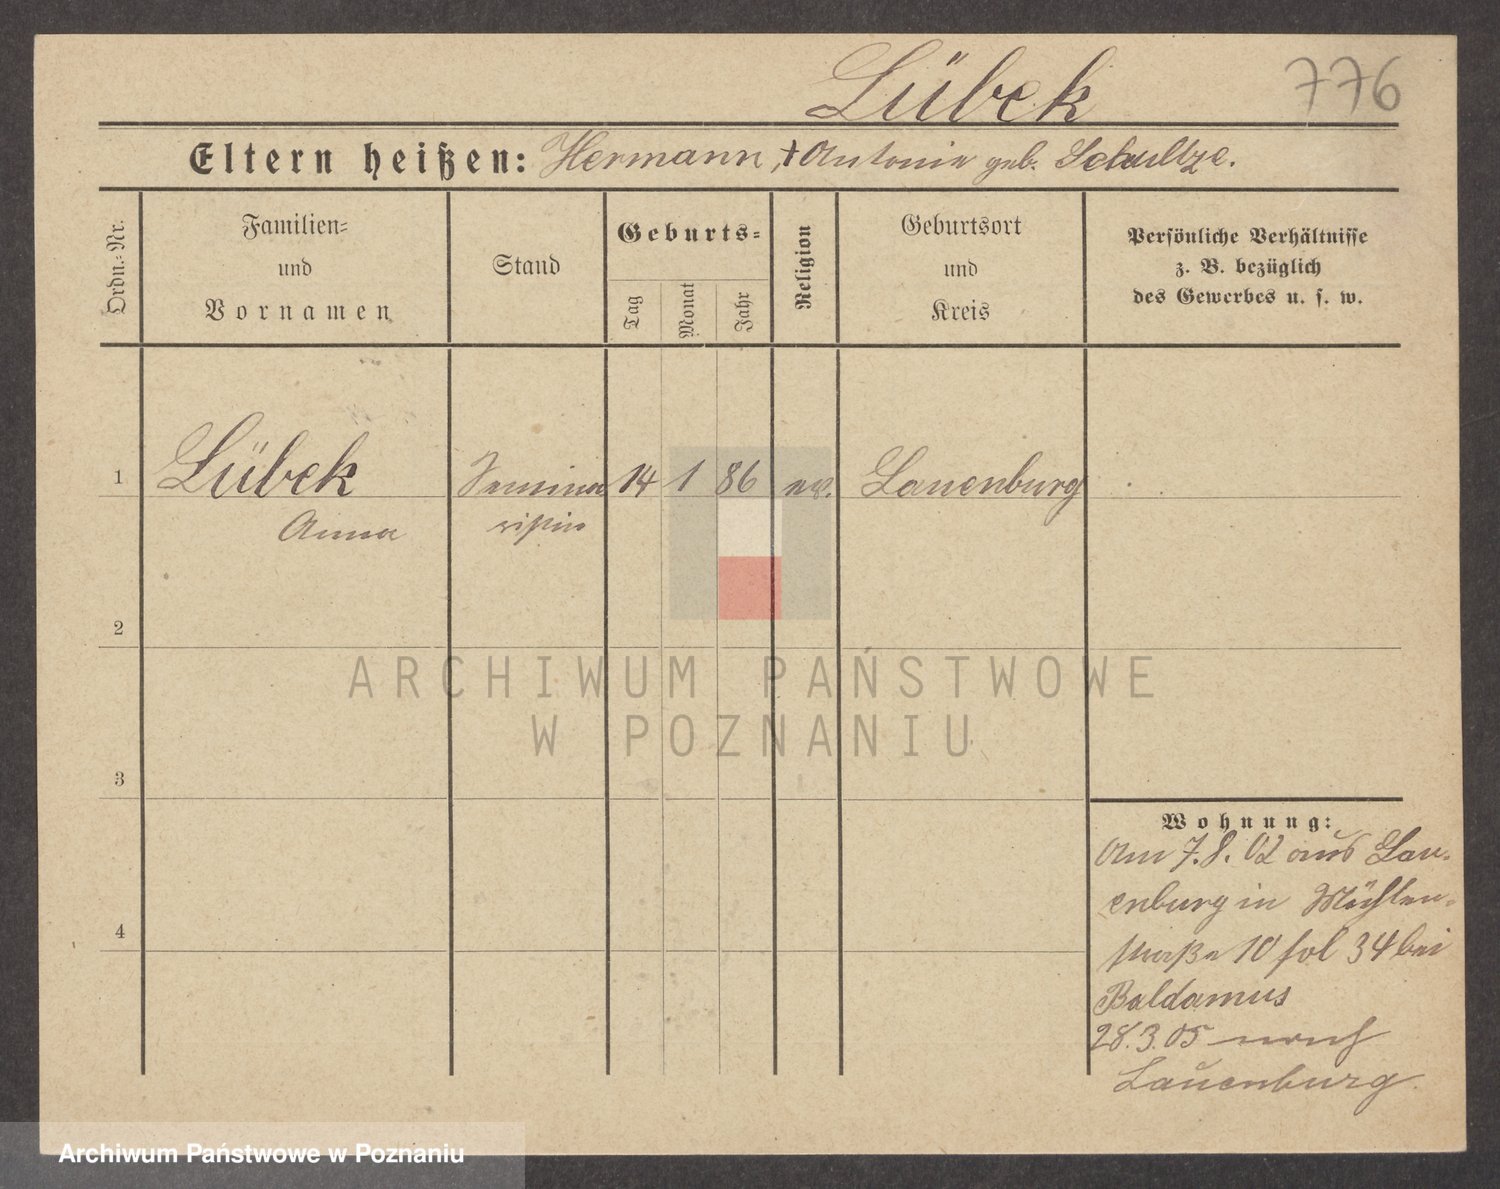 Lübek 776
Eltern heißen: Hermann, † Antonie geb. Schultze.
Ordn.-Nr.
Familien-
und
Vornamen
Stand
Geburts-
Tag
Monat
Jahr
Religion
Geburtsort
und
Kreis
Persönliche Verhältnisse
z. B. bezüglich
des Gewerbes u. s. w.
1 Lübek Semina 14 1 86 ev. Lauenburg
Anna ristin
2
3
4
Wohnung:
Am 7.8.02 aus Lau-
enburg in Mühlen-
straße 10 fol 34 bei
Baldamus
28.3.05 nach
Lauenburg
ARCHIWUM PAŃSTWOWE
W POZNANIU
Archiwum Państwowe w Poznaniu